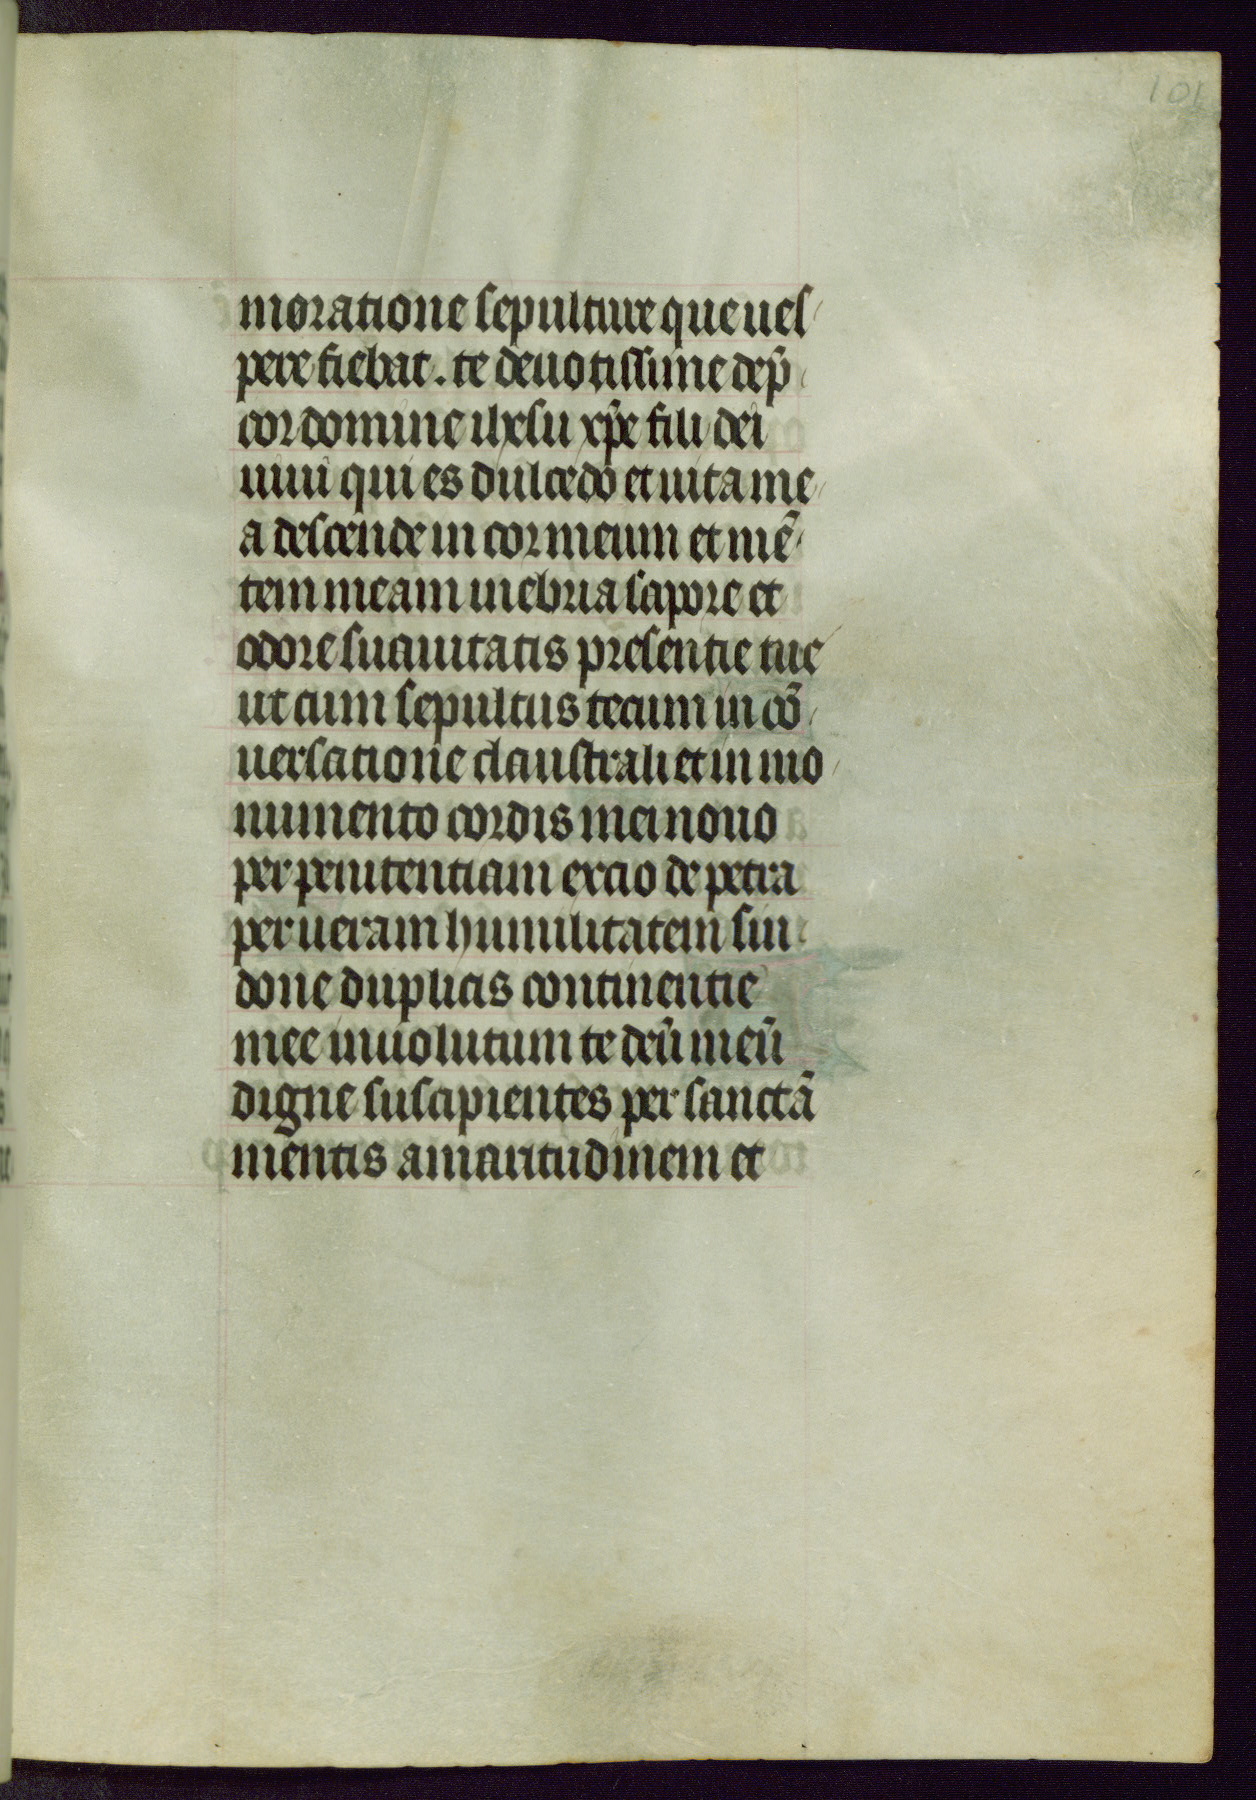 101
moratione sepulture que ues
pere fiebat. te deuotissime dep̄
cor domine ihesu xp̄e fili dei
uiui qui es dulcedo et uita me
a descende in cor meum et mē
tem meam inebria sapore et
odore suauitatis presentie tue
ut cum sepultus tecum in cō
uersatione claustrali et in mo
numento cordis mei nouo
per penitentiam exciso de petra
per ueram humilitatem sin
done duplicis continentie
mee inuolutum te deū meū
digne suscipientes per sanctā
mentis amaritudinem et